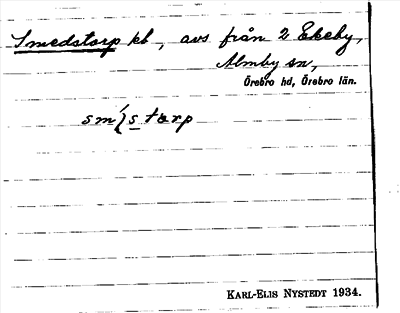 Smedstorp kb, avs. från 2 Ekeby,
Almby sn,
Örebro hd, Örebro län.
KARL-ELIS NYSTEDT 1934.